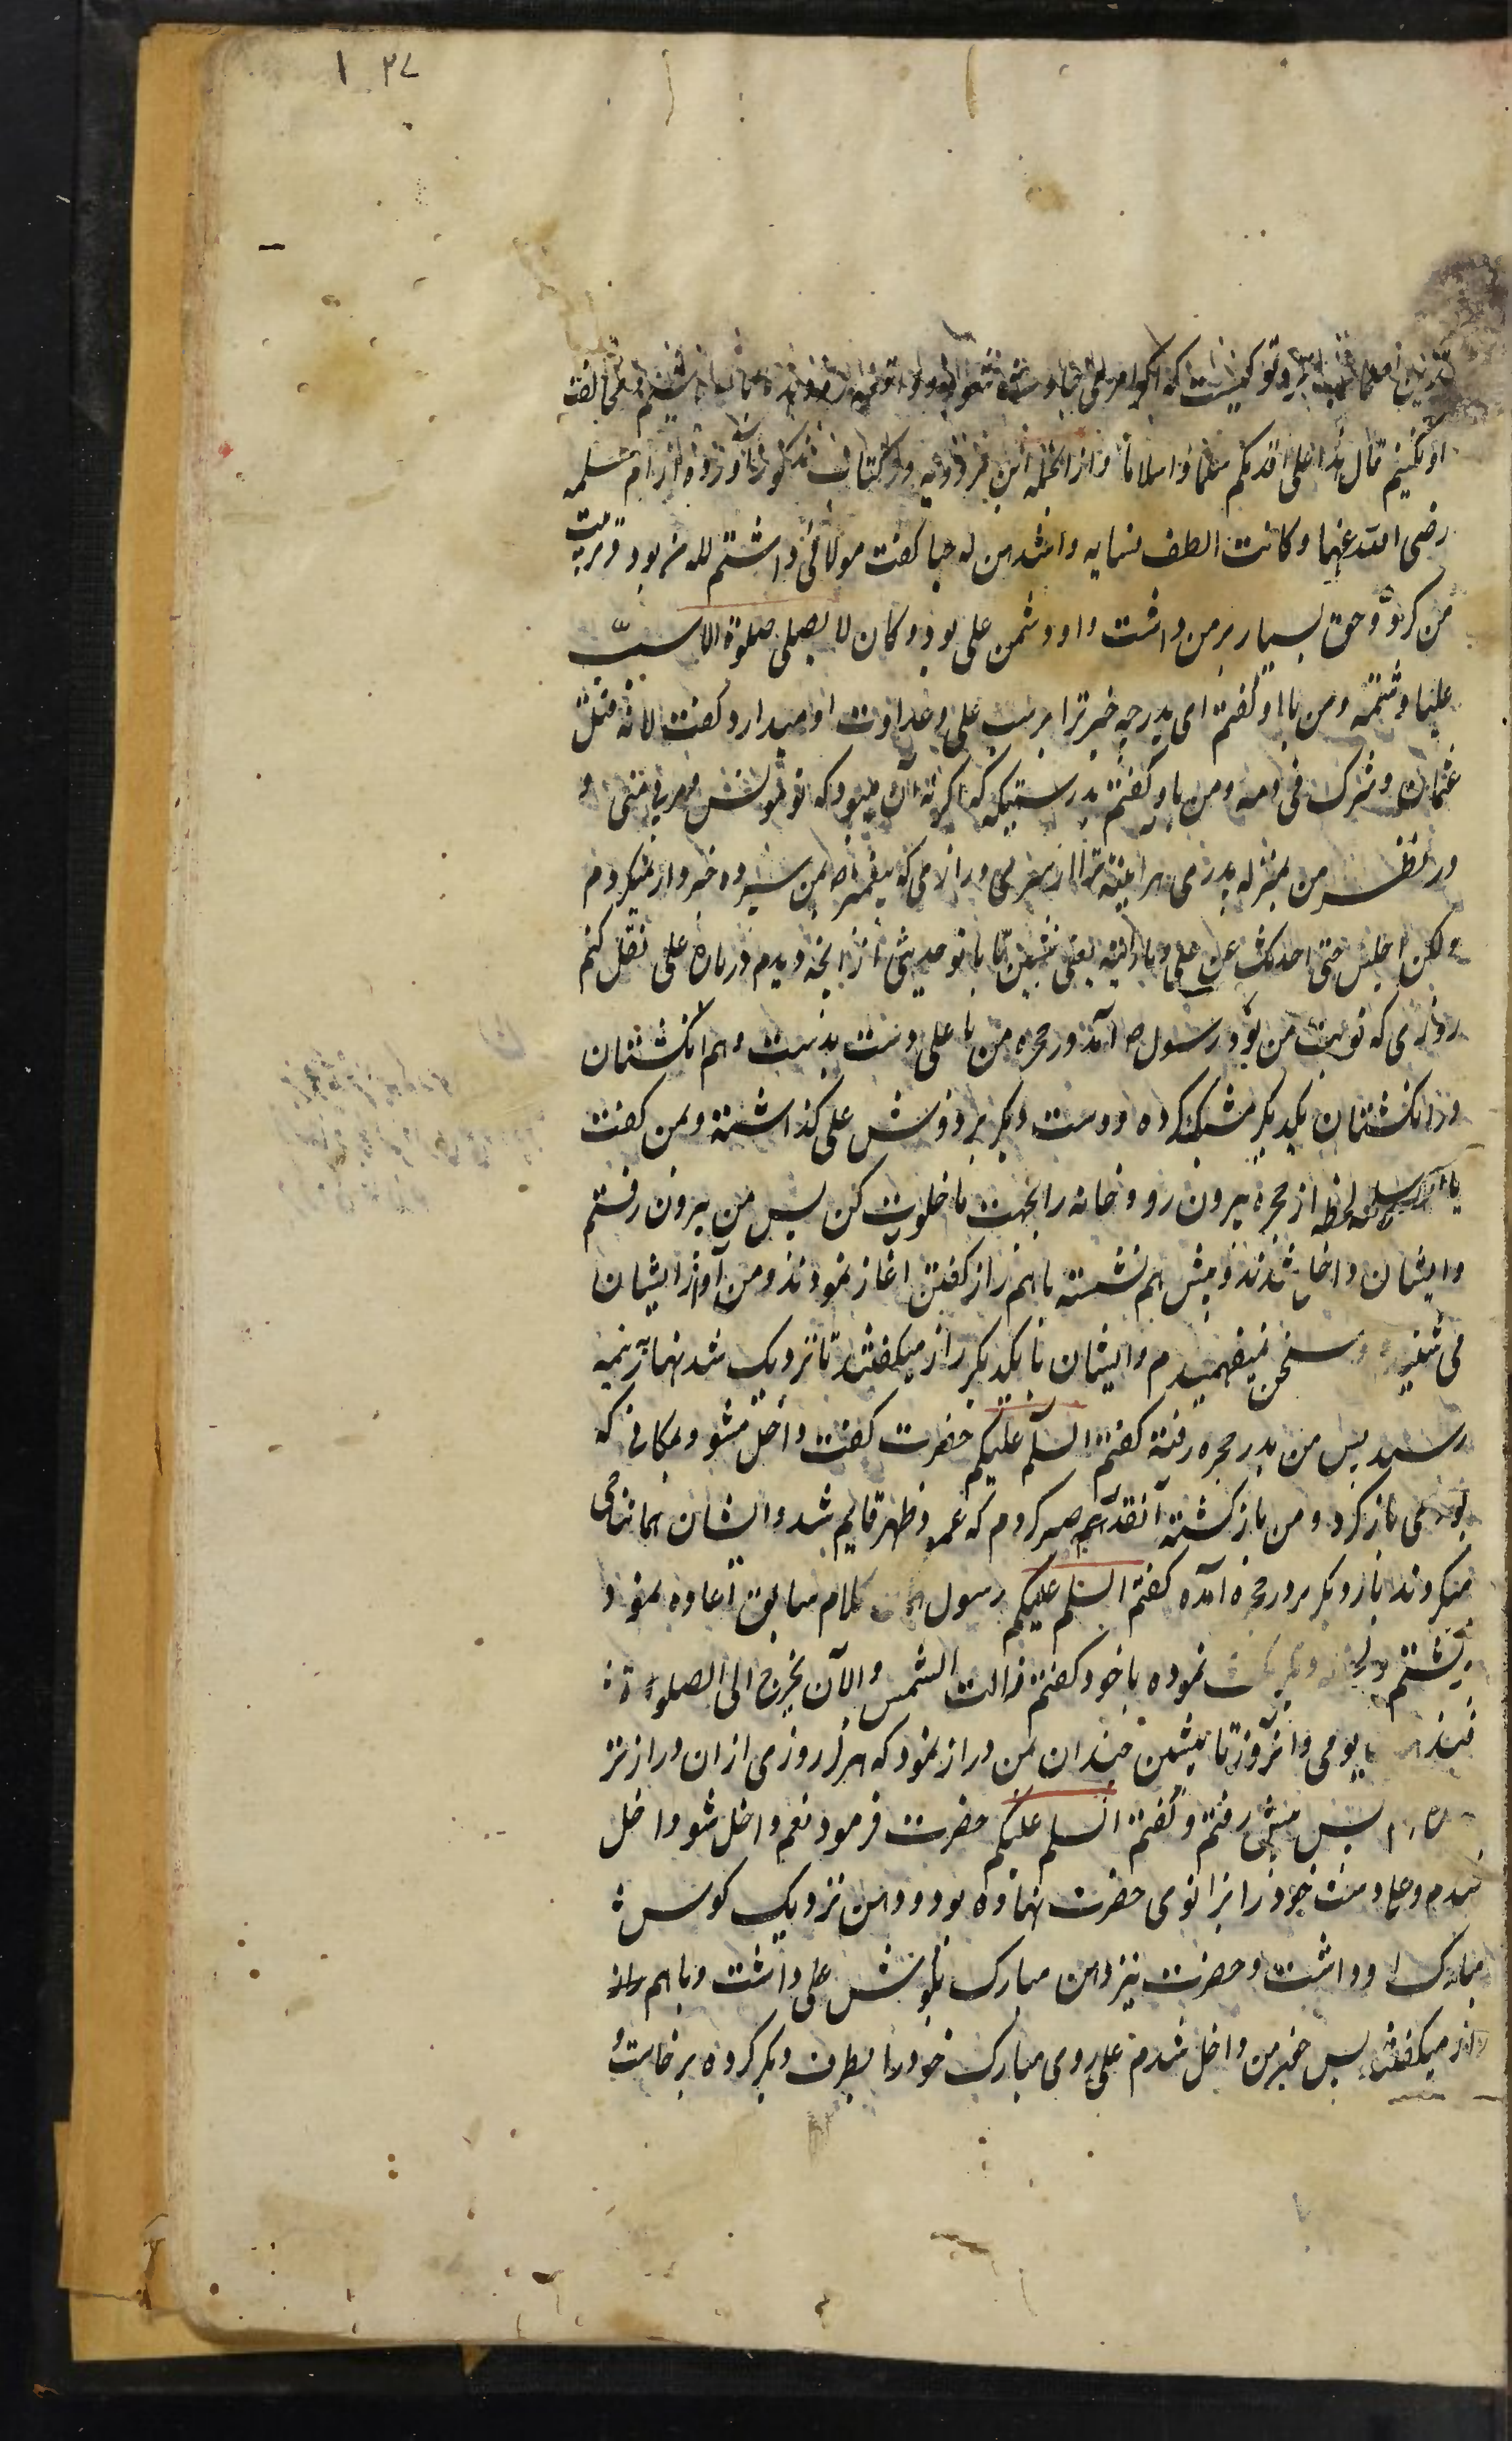 ۱ ۳۷
او نکنیم قال هذا علی اقدمکم سلما و اسلاما و از انجمله ابن مردویه در کتاب مذکور آورده از ام سلمه
رضی الله عنها و کانت الطف نسایه و اشدهن له حبا گفت مولائی داشتم که مربود تربیت
من کرد و حق بسیار بر من داشت و او دشمن علی بود و کان لا یصلی صلوة الا سبّ
علیا و شتمه و من با او گفتم ای پدر چه خبر ترا بر سب علی و عداوت او میدارد گفت لانه قتل
عثمان و شرک فی دمه و من باو گفتم بدرستیکه که اگر نه آن میبود که تو مولای من و مربی منی و
در نظر من بمنزله پدر می هر اینه ترا از سر می و رازی که پیغمبر ص بمن سپرده خبردار نمیکردم
ولکن اجلس حتی احدثک عن علی و ما رایته یعنی بنشین تا با تو حدیثی از انچه دیدم درباره علی نقل کنم
روزی که نوبت من بود رسول ص آمد در حجره من با علی دست بدست و هم انگشتان
در انگشتان یکدیگر مشبک کرده و دست دیگر بر دوش علی گذاشته و بمن گفت
یا ام سلمه لحظه از حجره بیرون رو و خانه را بجهت ما خلوت کن پس من بیرون رفتم
و ایشان داخل شدند و پیش هم نشسته با هم راز گفتن اغاز نمودند و من آواز ایشان
می شنیدم و سخن نمیفهمیدم و ایشان با یکدیگر راز میگفتند تا نزدیک شد نهار نیمه
رسید پس من بدر حجره رفته گفتم السلم علیکم حضرت گفت داخل مشو و بمکانی که
بودی باز گرد و من باز گشته آنقدر صبر کردم که عمود ظهر قایم شد و ایشان همان تناجی
میکردند بار دیگر بر در حجره آمده گفتم السلم علیکم رسول همان کلام سابق اعاده نمود
برگشتم و نموده با خود گفتم زالت الشمس و الآن یخرج الی الصلوة
فیذهب یومی و آنروز تا پیشین چندان بمن دراز نمود که هرگز روزی از ان دراز تر
پس پیش رفتم و گفتم السلم علیکم حضرت فرمود نعم داخل شو داخل
شدم و علی دست خود را بزانوی حضرت نهاده بود و دهن نزدیک گوش
مبارک او داشت و حضرت نیز دهن مبارک بگوش علی داشت و با هم راز
راز میگفتند پس چون من داخل شدم علی روی مبارک خود را بطرف دیگر کرده برخاست